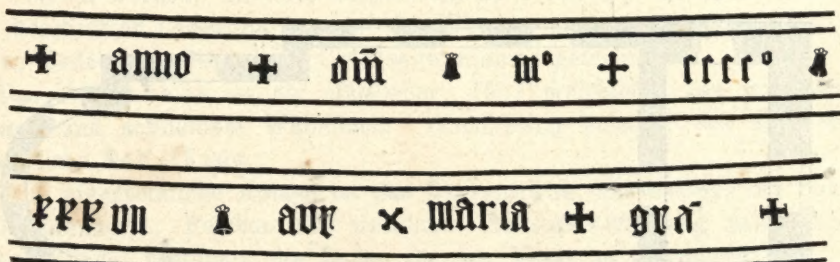 ✠ anno ✠ dm̄ 🔔 mº + ccccº 🔔
xxxvii 🔔 ave × maria ✠ grā ✠